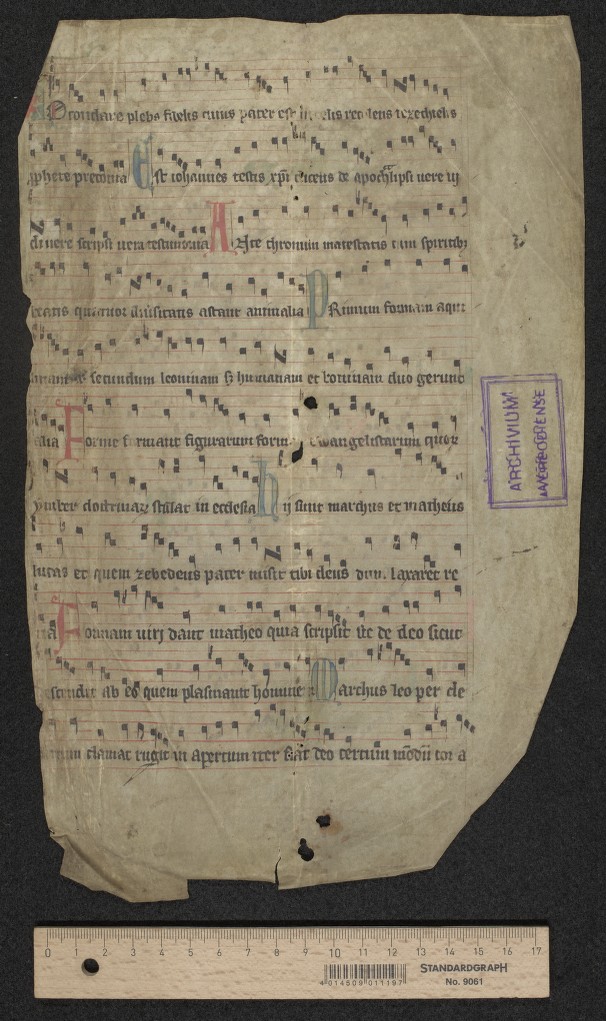 plebs fidelis cuius pater est in celis recolens iezechielis
prophete preconia Est iohannes testis xpi de apochalipsi uere iij
di uere scripsit uera testimonia Arce thronum maiestatis cum spiritibȝ
beatis quatuor diuersitatis astant animalia Primum formam aqui
secundum leoninam sȝ humanam et bouinam duo gerunt
alia Forme formant figurarum formas ewangelistarum quorȝ
ymber doctrinarȝ stillat in ecclesia hij sunt marchus et matheus
lucas et quem zebedeus pater misit tibi deus dum laxaret re
tia Formam uiri dant matheo quia scripsit sic de deo sicut
descendit ab eo quem plasmauit homine Marchus leo per de
sertum clamat rugit in apertum iter fiat deo certum
ARCHIVIUM
0 1 2 3 4 5 6 7 8 9 10 11 12 13 14 15 16 17
STANDARDGRAPH
4 014509 011197
No. 9061